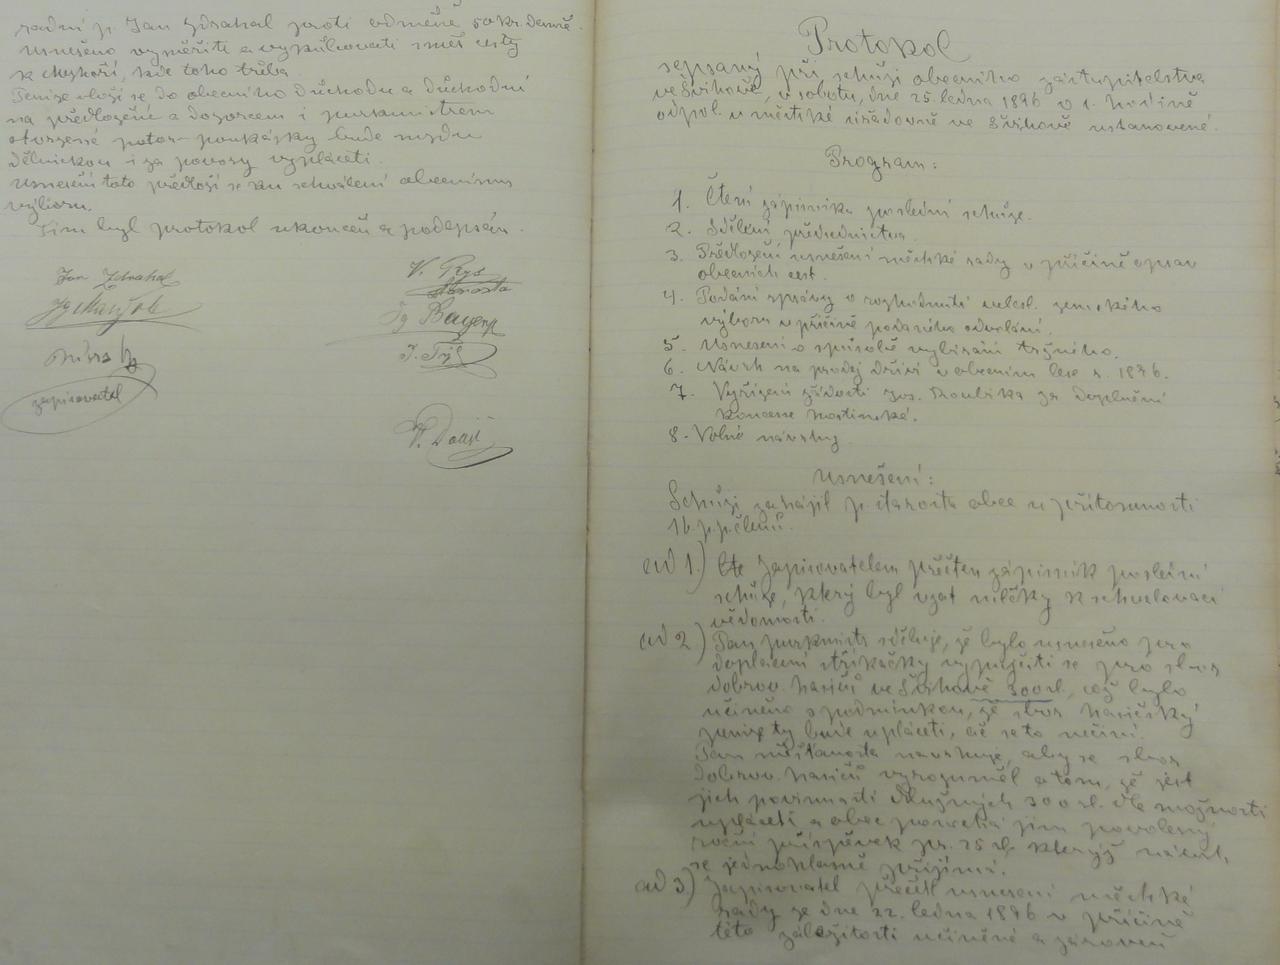 radní p. Jan Zdrahal proti odměně 50 kr. denně.
Usnešeno vyměřiti a vyštěrkovati směr cesty
k Mezhoří, kde toho třeba.
Peníze vloží se do obecního důchodu a důchodní
na předložené a dozorcem i purkmistrem
stvrzené potom poukázky bude mzdu
dělnickou i za povozy vypláceti.
Usnesení toto předloží se ku schválení obecnímu
výboru.
Tím byl protokol ukončen a podepsán.
Jan Zdrahal
V. Rys
starosta
Ig. Bayerl
zapisovatel
Protokol
sepsaný při schůzi obecního zastupitelstva
ve Švihově, v sobotu, dne 25. ledna 1896 o 1. hodině
odpol. v městské úřadovně ve Švihově ustanovené.
Program:
1. Čtení zápisníku poslední schůze.
2. Sdělení předsednictva.
3. Předložení usnešení městské rady v příčině oprav
obecních cest.
4. Podání zprávy o rozhodnutí velesl. zemského
výboru v příčině podaného odvolání.
5. Usnesení o způsobě vybírání tržného.
6. Návrh na prodej dříví v obecním lese r. 1896.
7. Vyřízení žádosti Jos. Roubíka za doplnění
koncesse hostinské.
8. Volné návrhy.
Usnešení:
Schůzi zahájil p. starosta obce u přítomnosti
16 p.p. členů.
ad 1.) Čte zapisovatelem přečten zápisník poslední
schůze, který byl vzat mlčky k schvalovací
vědomosti.
ad 2.) Pan purkmistr sděluje, že bylo usnešeno pro
doplacení stříkačky vypůjčiti se pro sbor
dobrov. hasičů ve Švihově 300 zl., což bylo
učiněno s podmínkou, že sbor hasičský
peníze ty bude upláceti, ač se to nečiní.
Pan měšťanosta navrhuje, aby se sbor
dobrov. hasičů vyrozuměl o tom, že jest
jich povinností dlužných 300 zl. dle možnosti
upláceti a obec ponechá jim povolený
roční příspěvek pr. 25 zl. kterýž návrh
se jednohlasně přijímá.
ad 3.) Zapisovatel přečetl usnesení městské
rady ze dne 22. ledna 1896 v příčině
této záležitosti učiněné a zároveň